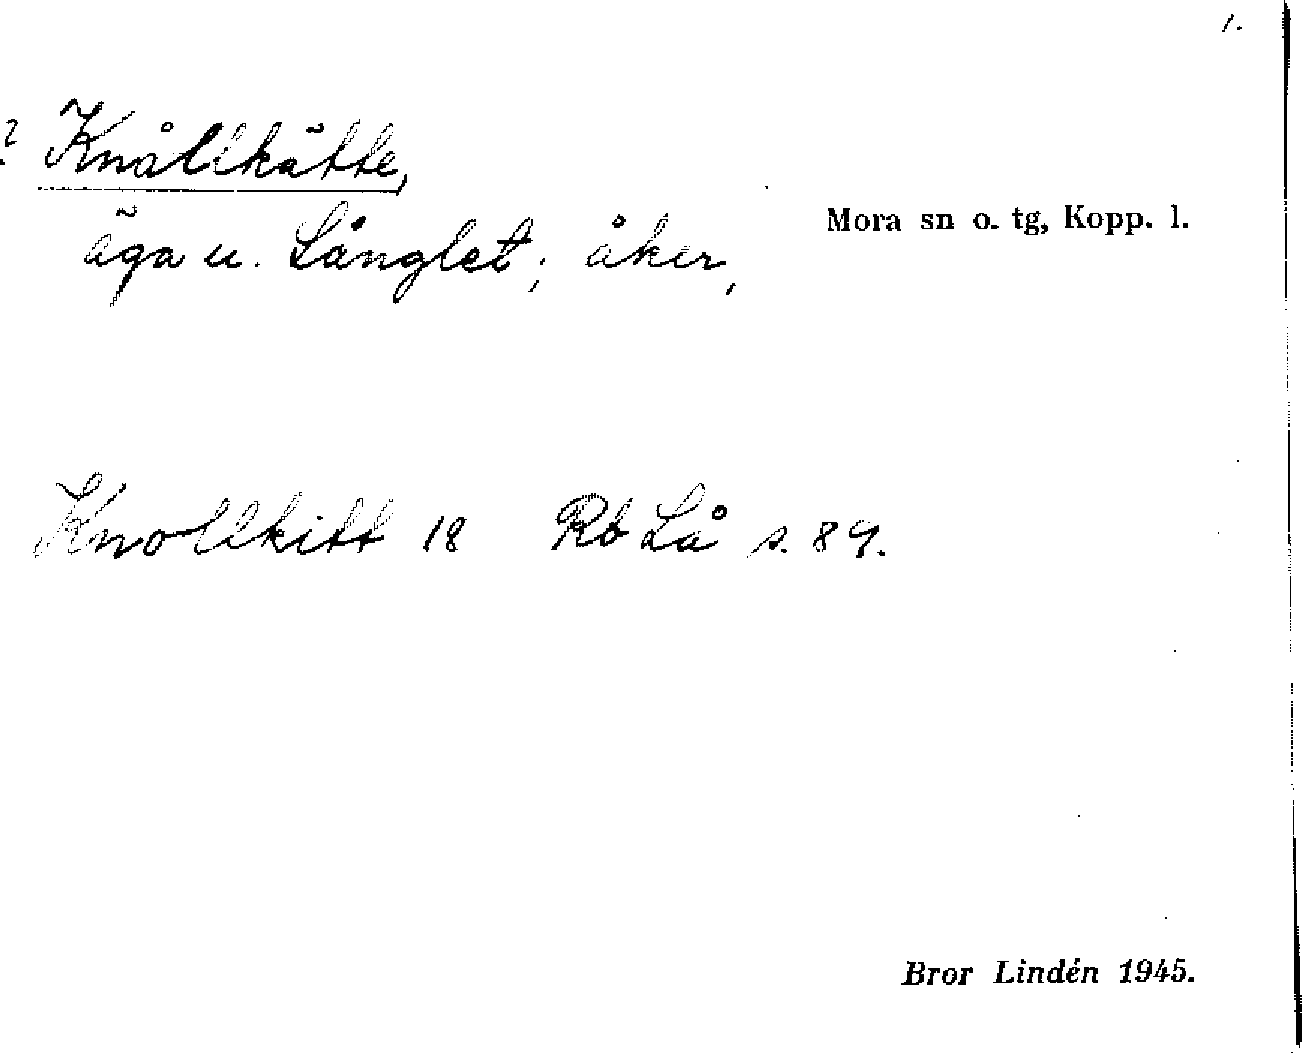 1.
? Knållkätte,
Mora sn o. tg, Kopp. l.
äga u. Långlet; åker,
Knollkitt 18 Rb Lå s. 89.
Bror Lindén 1945.